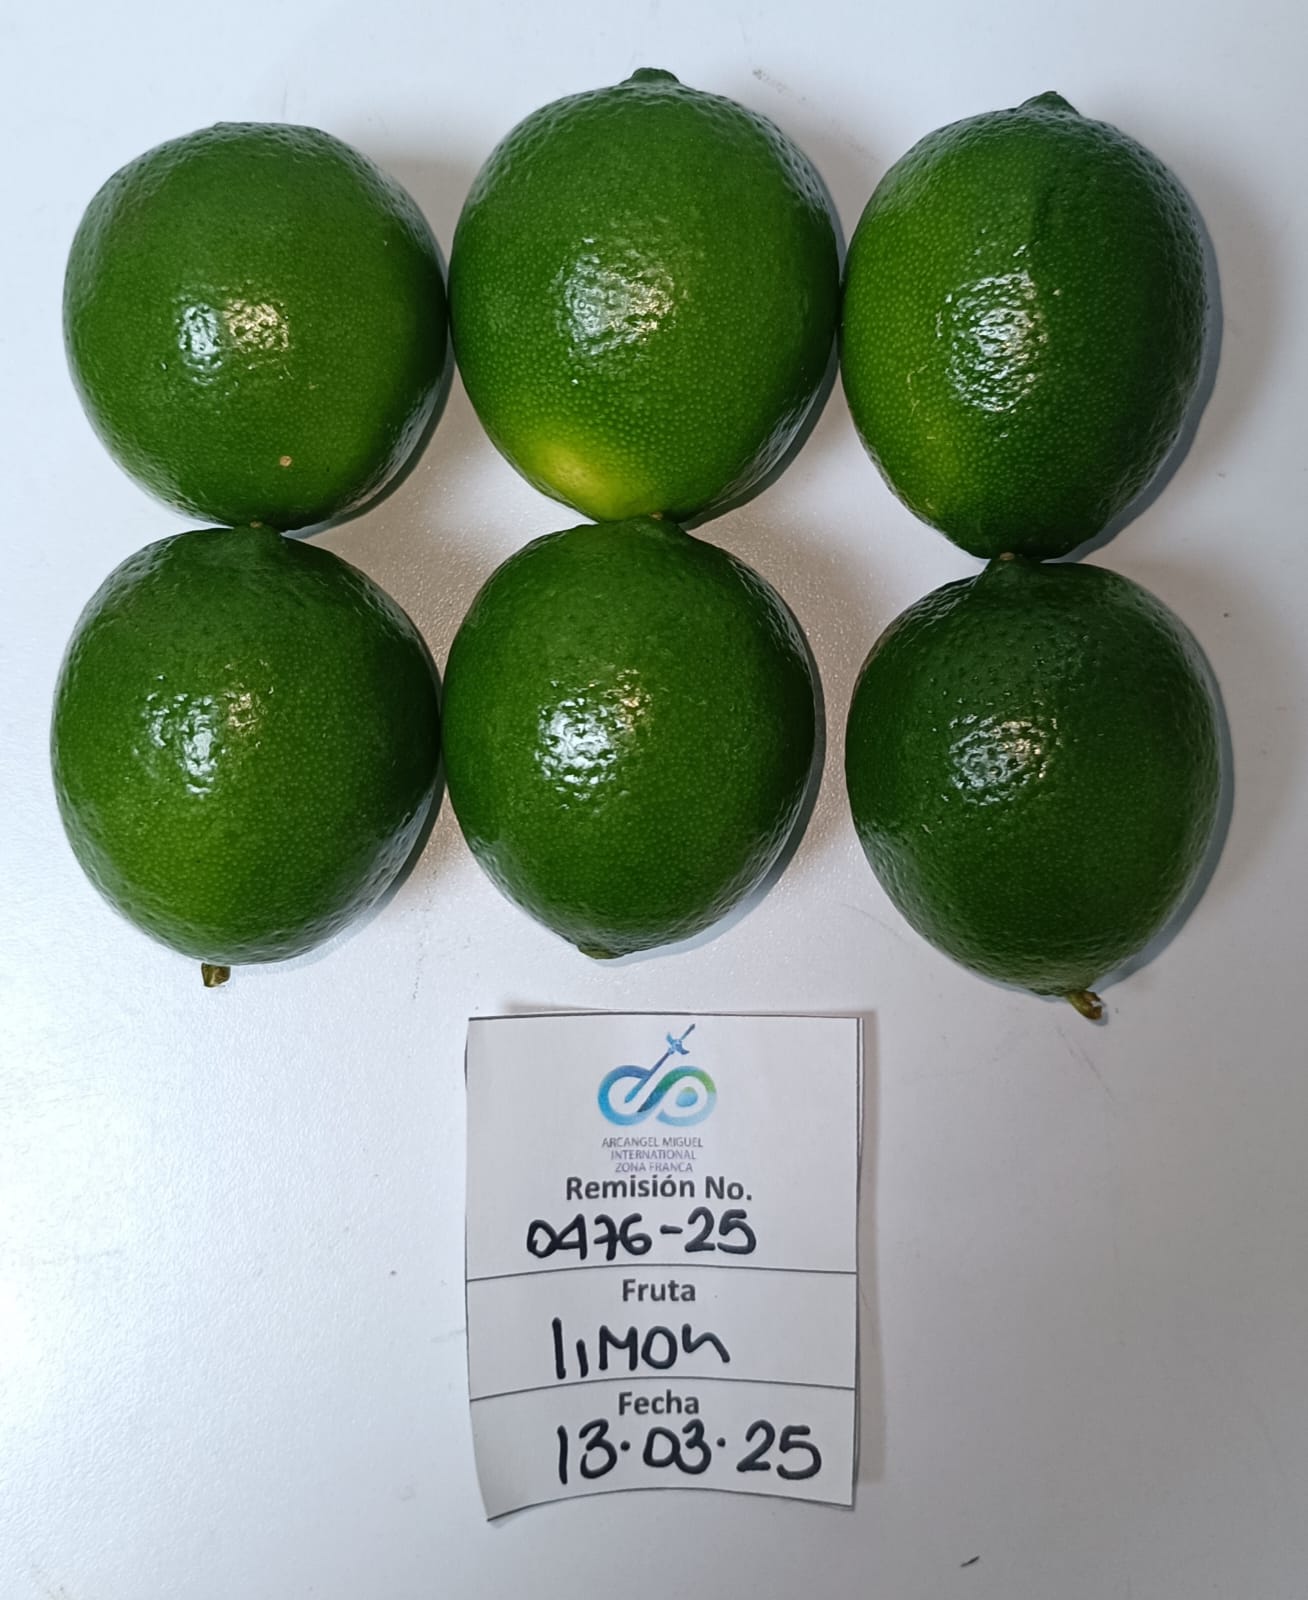 ARCANGEL MIGUEL
INTERNATIONAL
ZONA FRANCA
Remisión No.
0476-25
Fruta
lIMON
Fecha
13.03.25